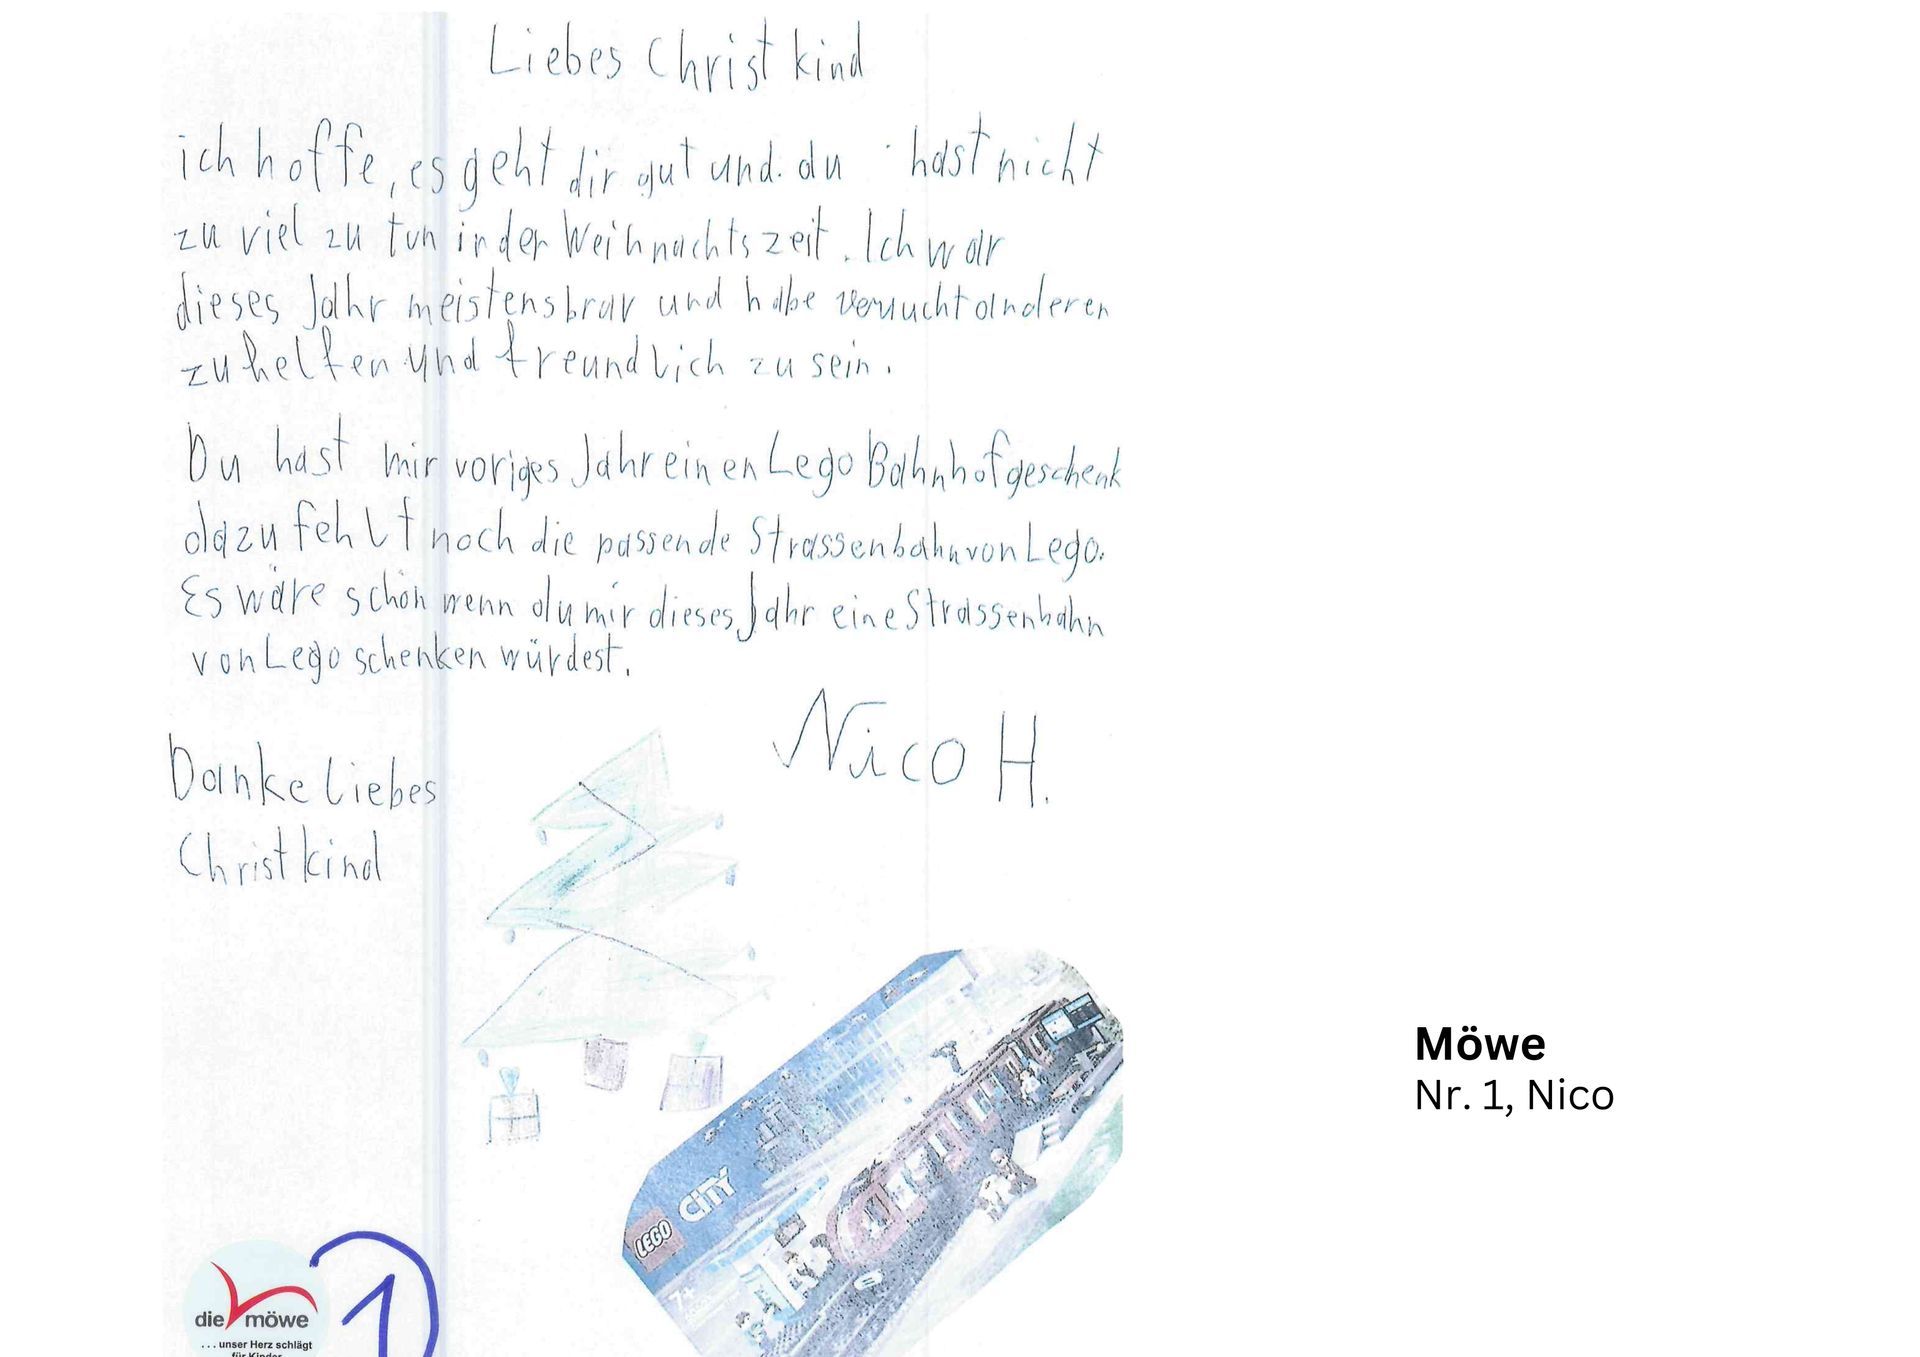 Liebes Christkind
ich hoffe, es geht dir gut und du hast nicht
zu viel zu tun in der Weihnachtszeit. Ich war
dieses Jahr meistens brav und habe versucht anderen
zu helfen und freundlich zu sein.
Du hast mir voriges Jahr einen Lego Bahnhof geschenk
dazu fehlt noch die passende Strassenbahn von Lego.
Es wäre schön wenn du mir dieses Jahr eine Strassenbahn
von Lego schenken würdest.
Nico H.
Danke liebes
Christkind
LEGO CITY
7+
1
die möwe
...unser Herz schlägt
für Kinder
Möwe
Nr. 1, Nico